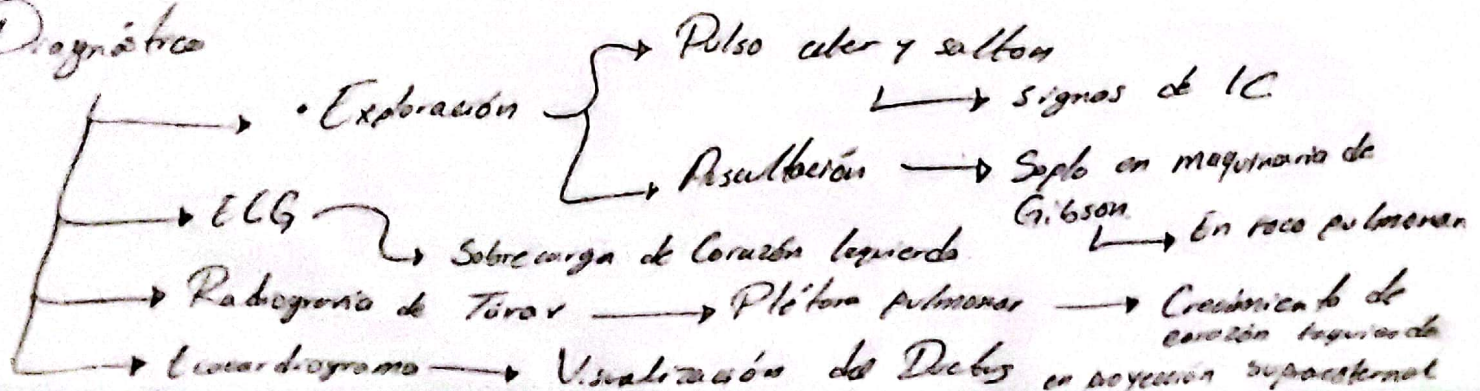 Diagnóstico
Pulso celer y saltón
signos de IC
• Exploración
Auscultación
Soplo en maquinaria de
Gibson
En foco pulmonar
ECG
Sobrecarga de Corazón Izquierdo
Radiografía de Tórax
Plétora pulmonar
Crecimiento de
corazón izquierdo
Ecocardiograma
Visualización del Ductus en proyección supraesternal